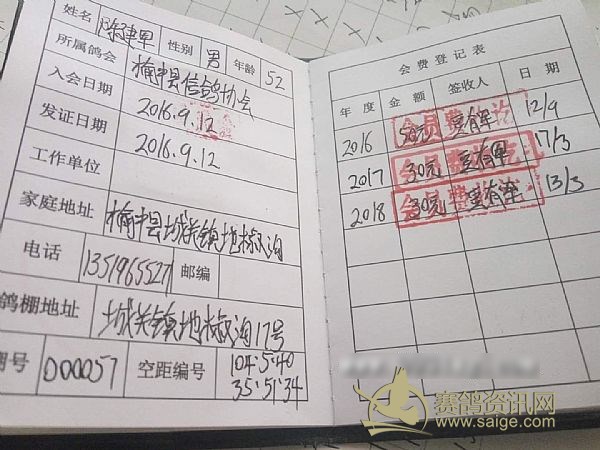 姓名 性别 男 年龄 52
所属鸽会 榆中县信鸽协会
入会日期 2016.9.12
发证日期 2016.9.12
工作单位
家庭地址 榆中县城关镇地
电话 邮编
鸽棚地址 城关镇地 沟17号
号 000057 空距编号 104:5:40
35:51:34
会费登记表
年度 金额 签收人 日期
2016 50元 12/9
2017 30元 17/3
2018 30元 13/3
会员费收讫
会员费收讫
会员费收讫
赛鸽资讯网
www.saige.com